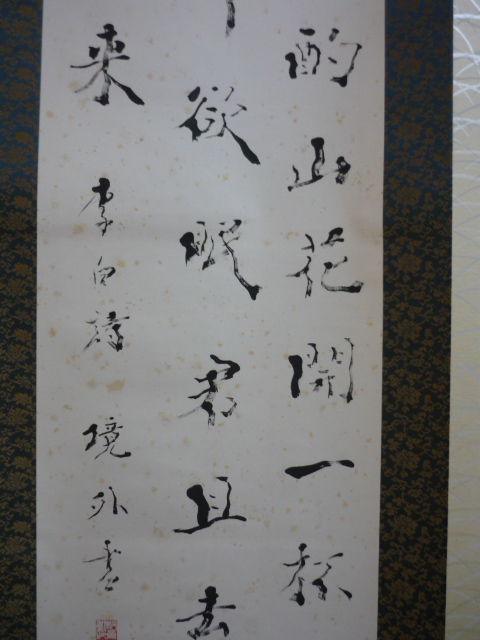 酌山花開一杯
欲眠君且去
来 李白詩 境外